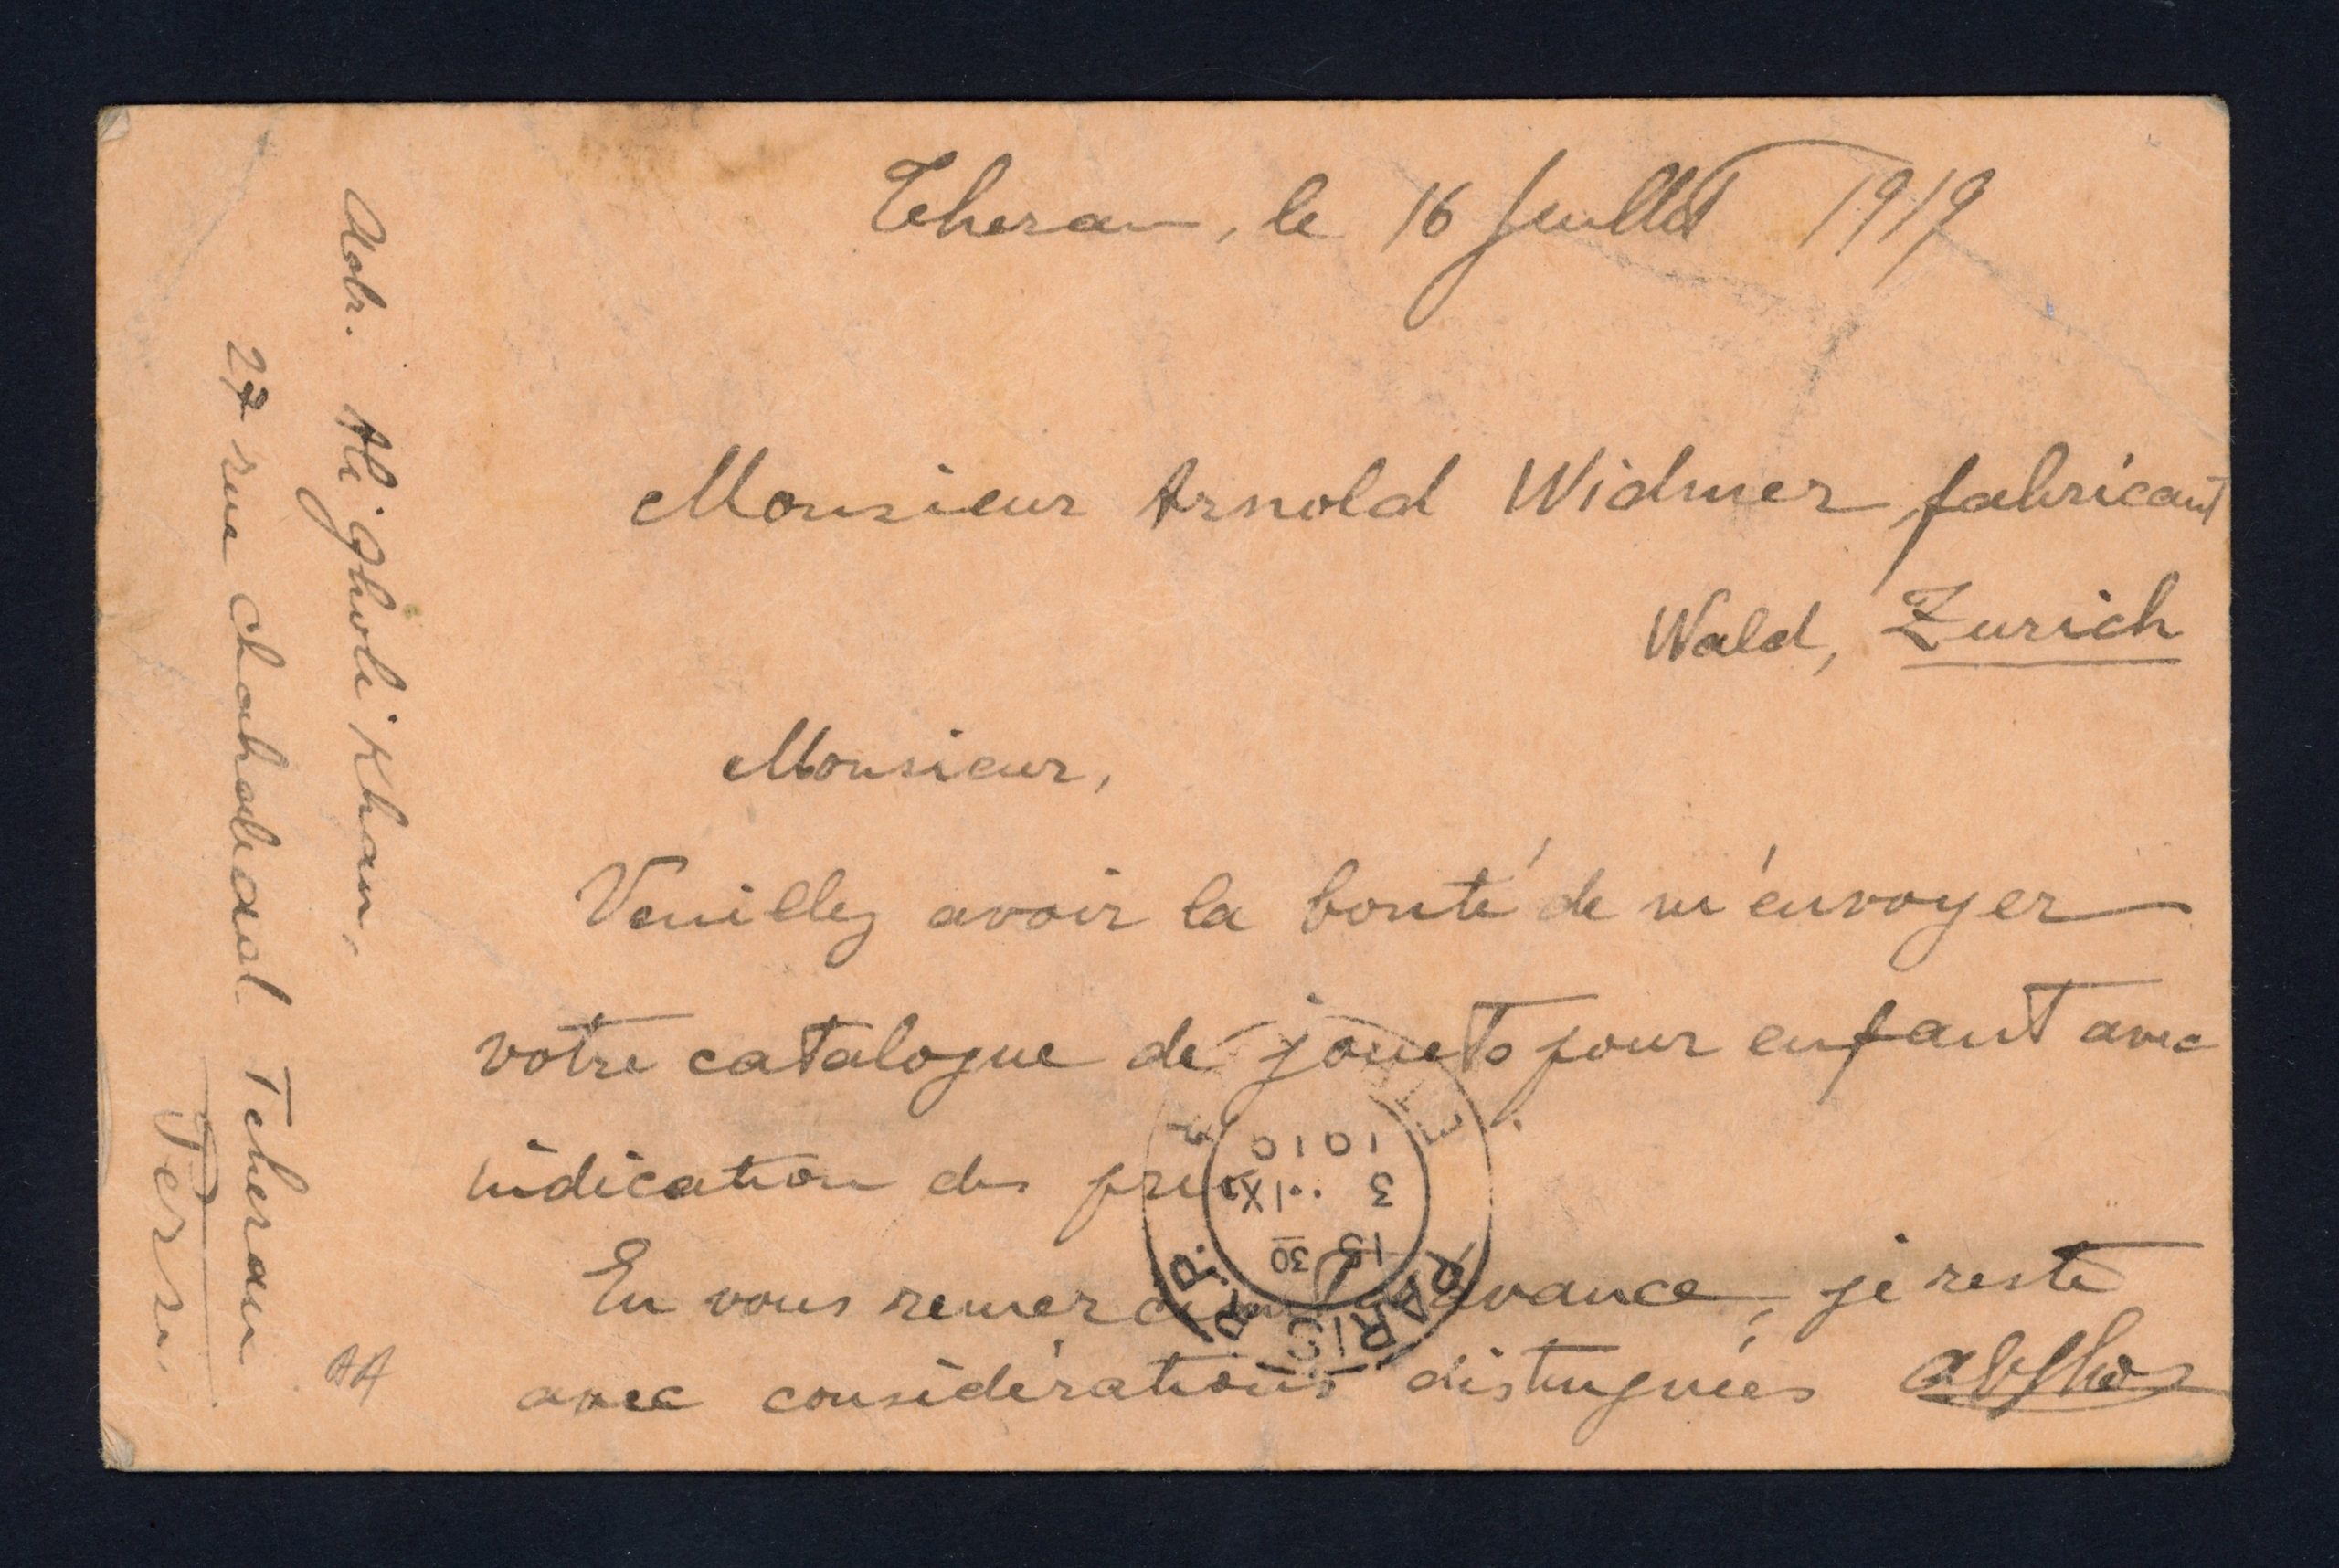 Teheran, le 16 Juillet 1919
Monsieur Arnold Widmer fabricant
Wald, Zurich
Monsieur,
Veuillez avoir la bonté de m'envoyer
votre catalogue de jouets pour enfant avec
indication des prix
En vous remerciant d'avance, je reste
avec considérations distinguées
Adr. Ali Gholi Khan,
27 rue Teheran
Perse
AA
1919
3 . IX
15 30
PARIS R.P.